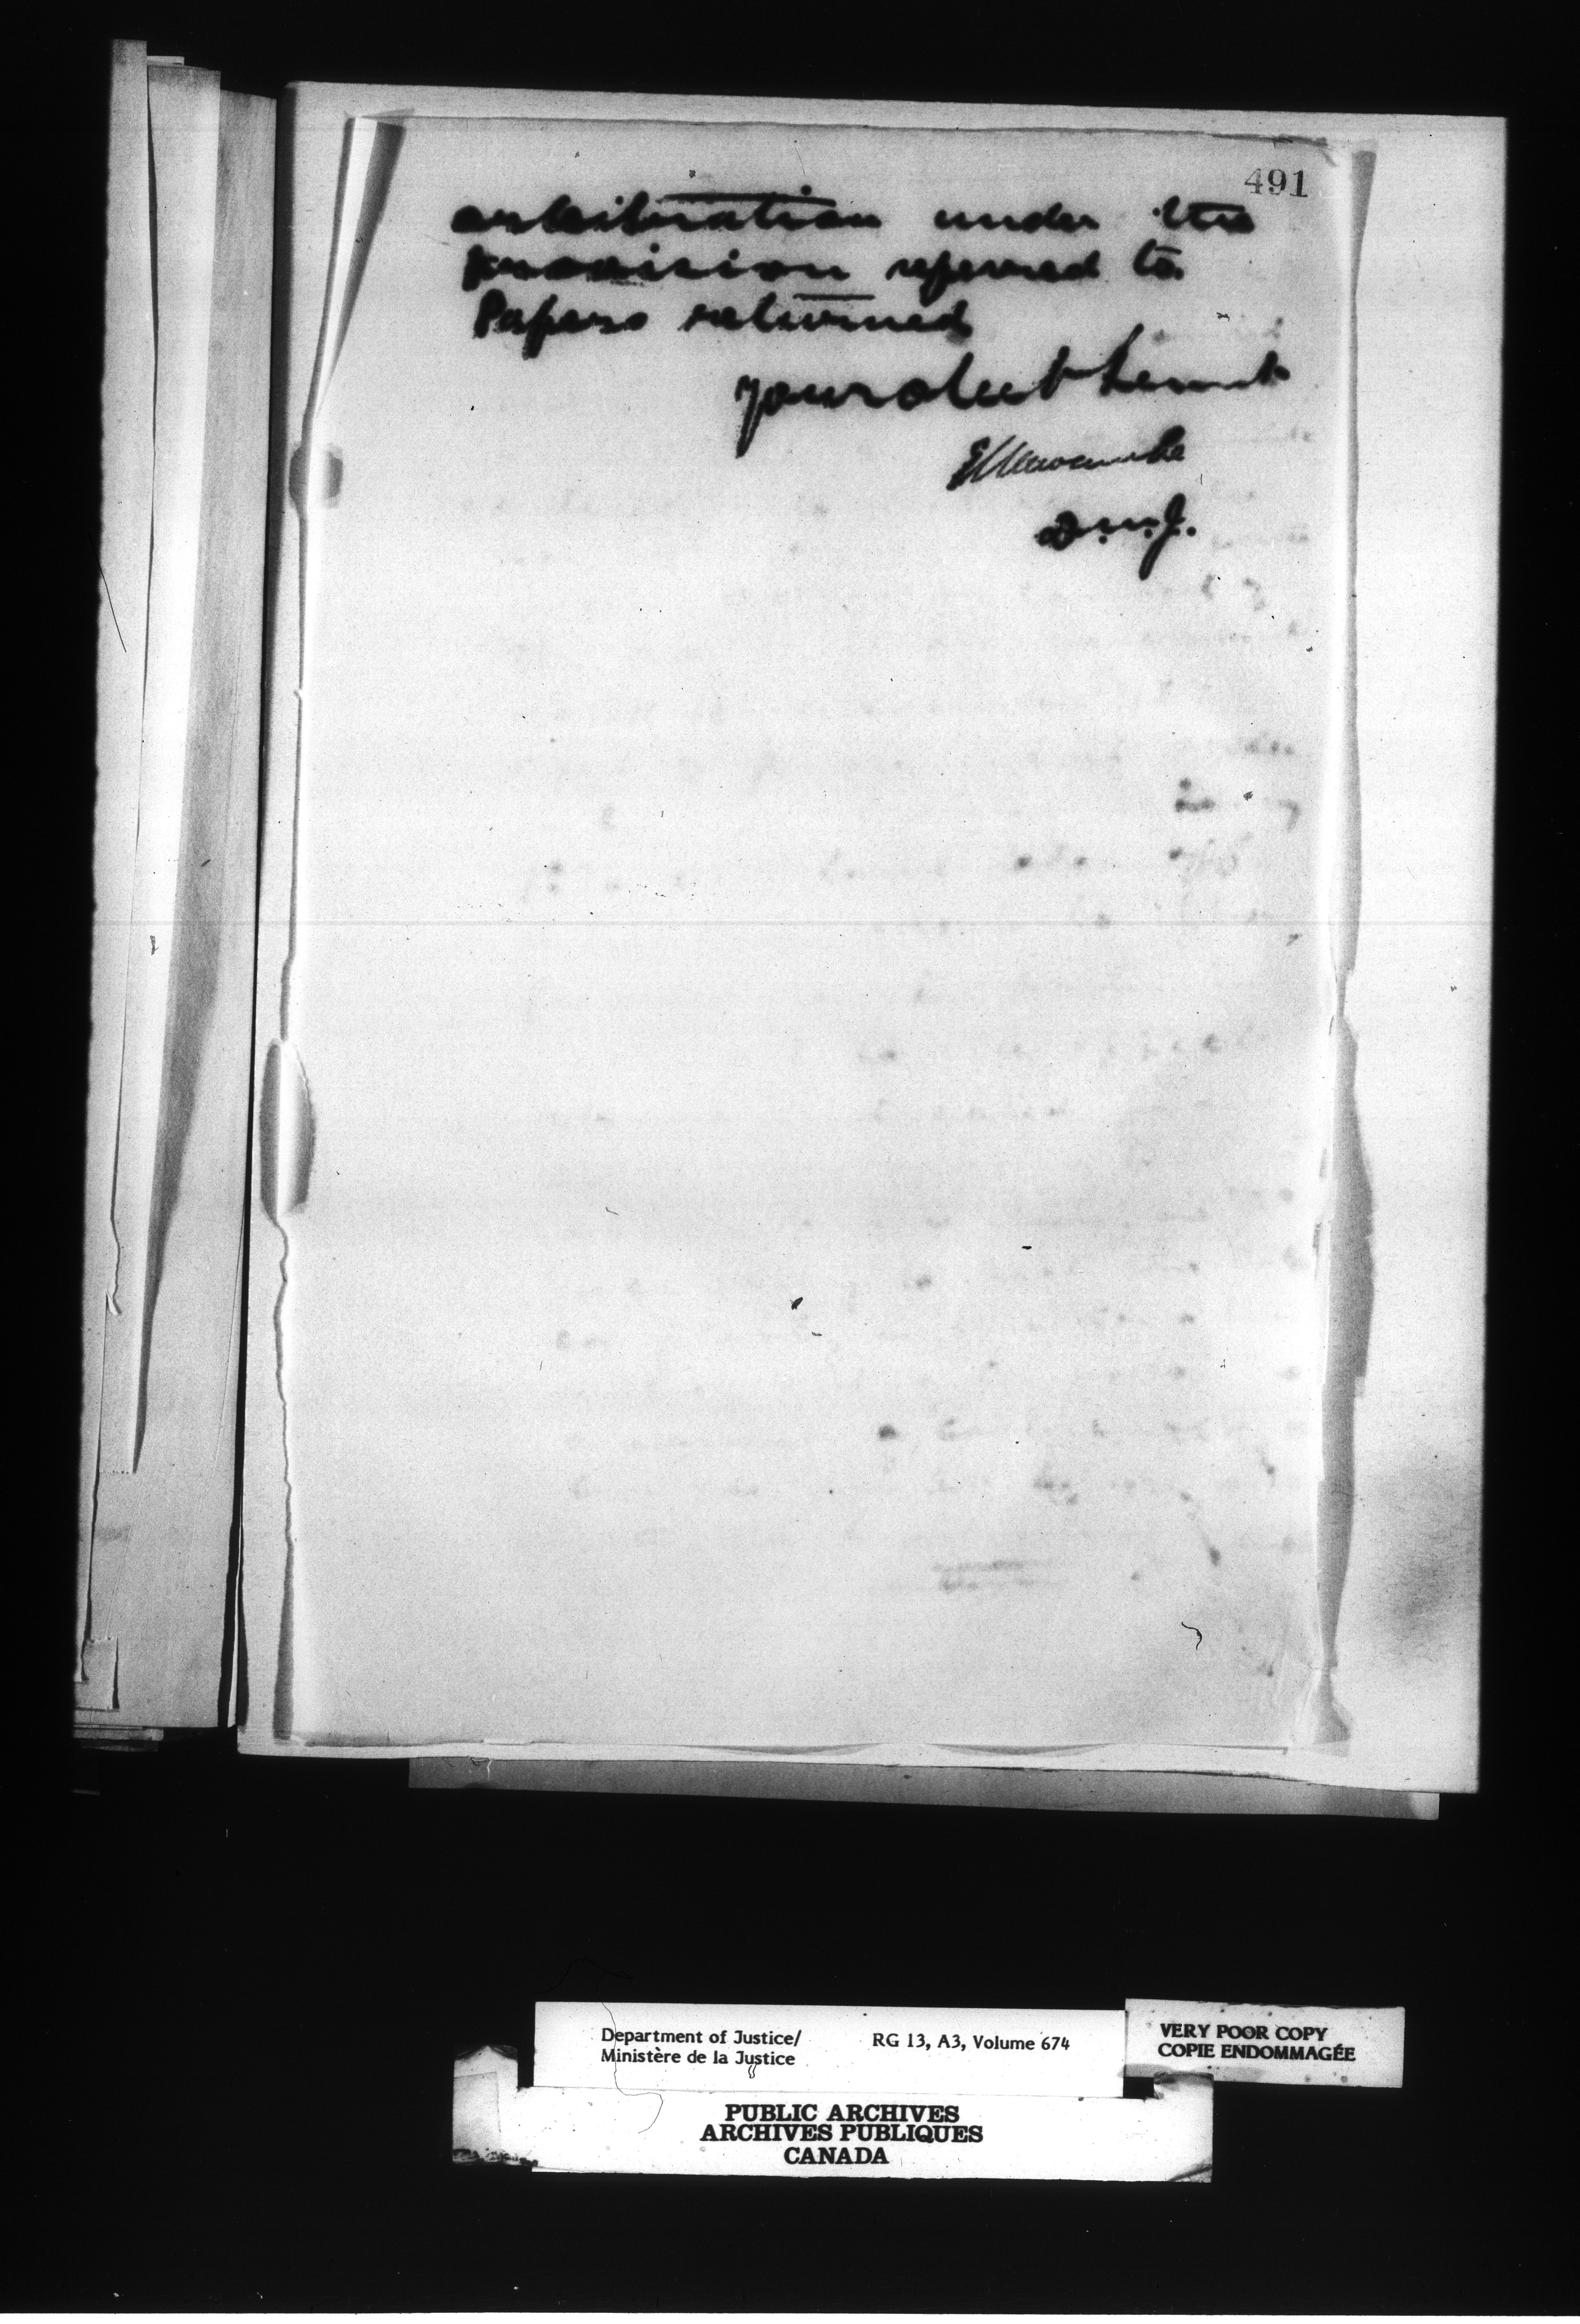 491
arbitration under the
provision referred to.
Papers returned
your obedt servnt
E L Newcombe
D.M.J.
Department of Justice/
Ministère de la Justice
RG 13, A3, Volume 674
VERY POOR COPY
COPIE ENDOMMAGÉE
PUBLIC ARCHIVES
ARCHIVES PUBLIQUES
CANADA